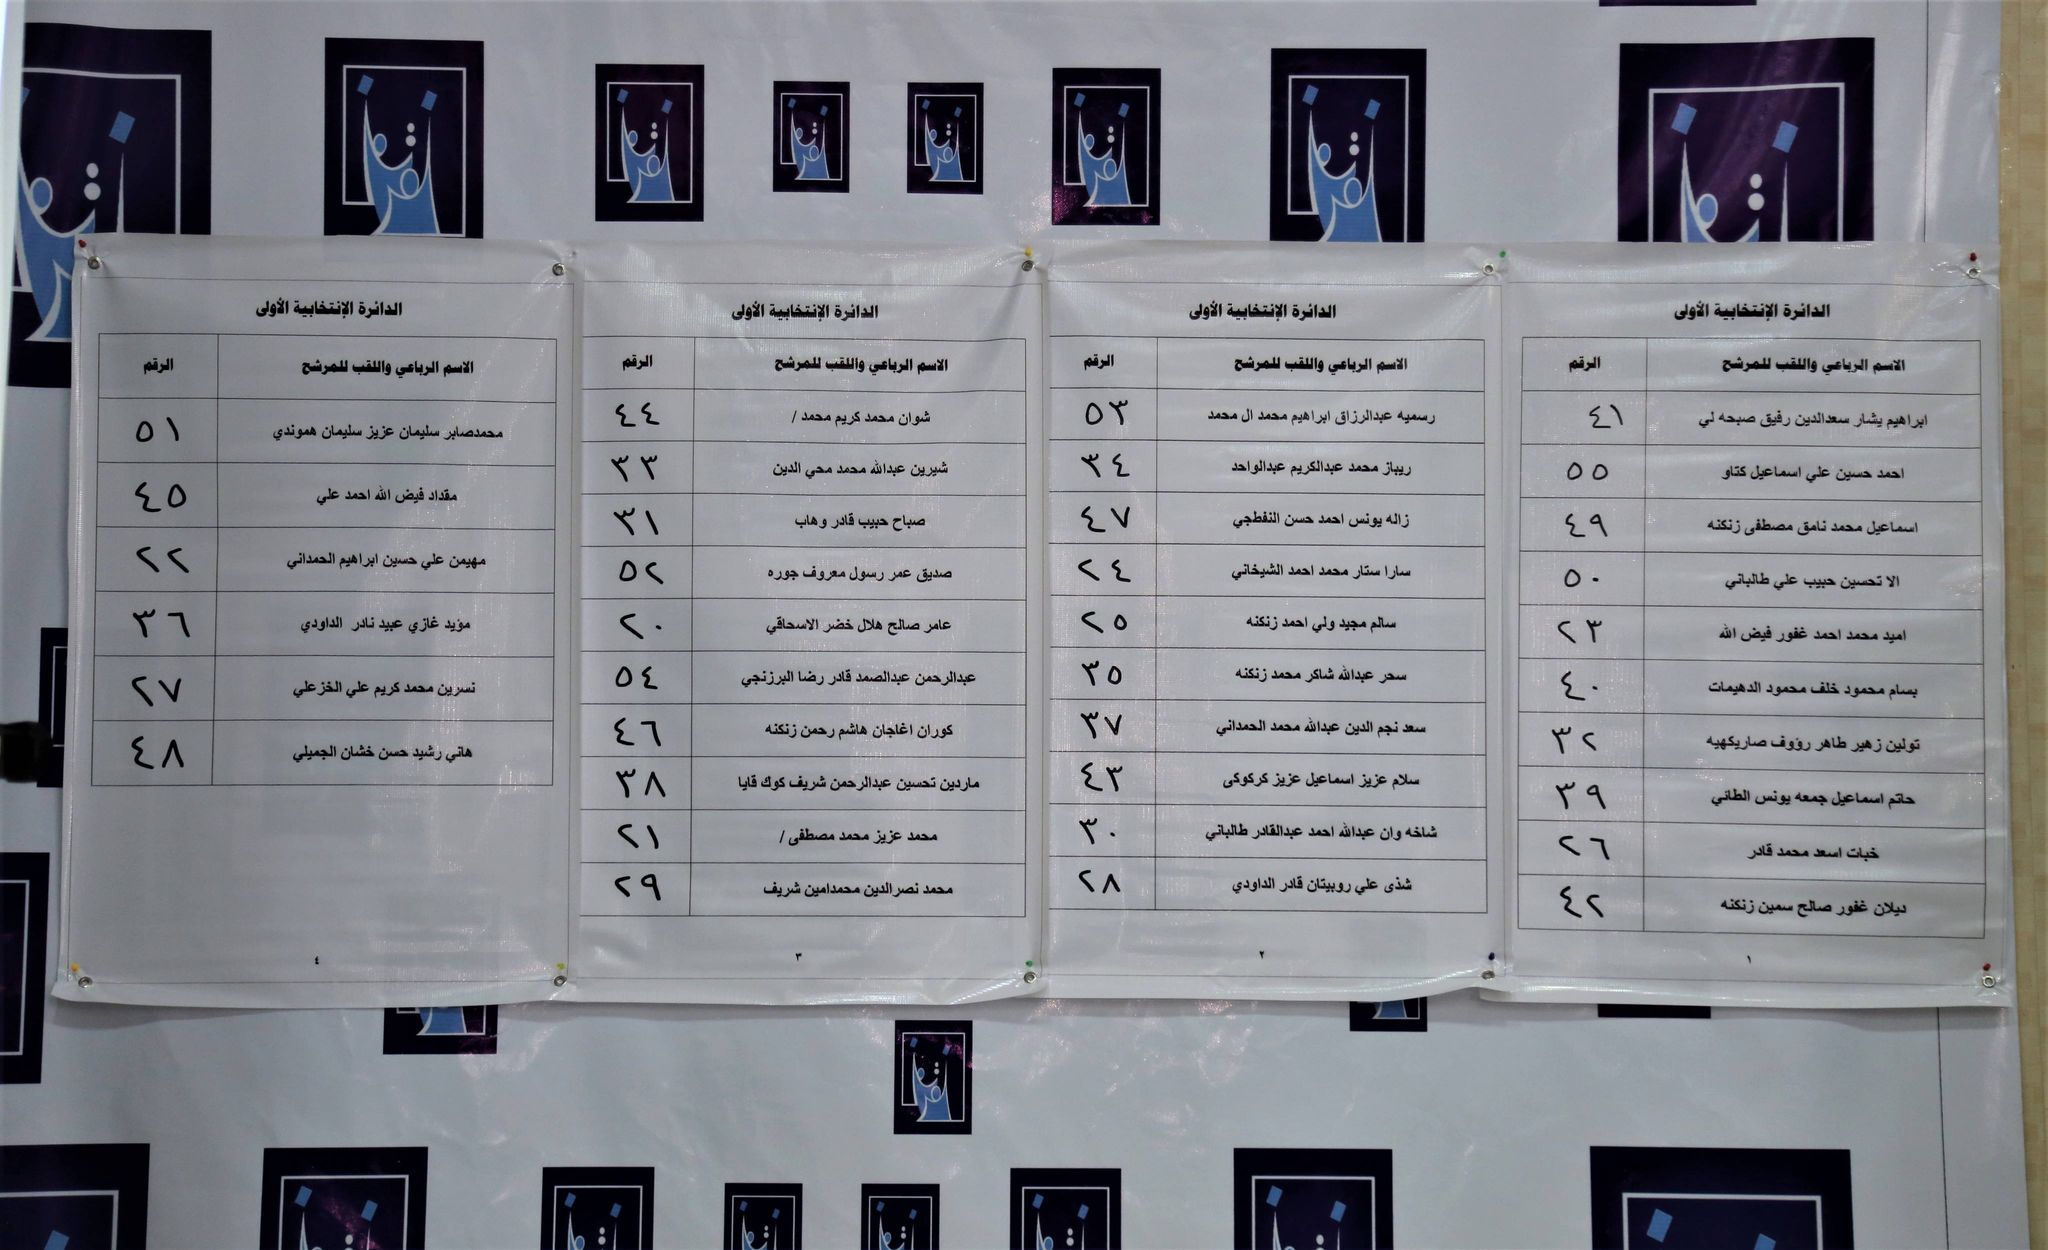 الدائرة الإنتخابية الأولى
الاسم الرباعي واللقب للمرشح الرقم
ابراهيم يشار سعدالدين رفيق صبحه لي ٤١
احمد حسين علي اسماعيل كتاو ٥٥
اسماعيل محمد نامق مصطفى زنكنه ٤٩
الا تحسين حبيب علي طالباني ٥٠
اميد محمد احمد غفور فيض الله ٢٣
بسام محمود خلف محمود الدهيمات ٤٠
تولين زهير طاهر رؤوف صاريكهيه ٣٢
حاتم اسماعيل جمعه يونس الطائي ٣٩
خبات اسعد محمد قادر ٢٦
ديلان غفور صالح سمين زنكنه ٤٢
١
الدائرة الإنتخابية الأولى
الاسم الرباعي واللقب للمرشح الرقم
رسميه عبدالرزاق ابراهيم محمد ال محمد ٥٣
ريباز محمد عبدالكريم عبدالواحد ٣٤
زاله يونس احمد حسن النفطجي ٤٧
سارا ستار محمد احمد الشيخاني ٢٤
سالم مجيد ولي احمد زنكنه ٢٥
سحر عبدالله شاكر محمد زنكنه ٣٥
سعد نجم الدين عبدالله محمد الحمداني ٣٧
سلام عزيز اسماعيل عزيز كركوكى ٤٣
شاخه وان عبدالله احمد عبدالقادر طالباني ٣٠
شذى علي روبيتان قادر الداودي ٢٨
٢
الدائرة الإنتخابية الأولى
الاسم الرباعي واللقب للمرشح الرقم
شوان محمد كريم محمد / ٤٤
شيرين عبدالله محمد محي الدين ٣٣
صباح حبيب قادر وهاب ٣١
صديق عمر رسول معروف جوره ٥٢
عامر صالح هلال خضر الاسحاقي ٢٠
عبدالرحمن عبدالصمد قادر رضا البرزنجي ٥٤
كوران اغاجان هاشم رحمن زنكنه ٤٦
ماردين تحسين عبدالرحمن شريف كوك قايا ٣٨
محمد عزيز محمد مصطفى / ٢١
محمد نصرالدين محمدامين شريف ٢٩
٣
الدائرة الإنتخابية الأولى
الاسم الرباعي واللقب للمرشح الرقم
محمدصابر سليمان عزيز سليمان هموندي ٥١
مقداد فيض الله احمد علي ٤٥
مهيمن علي حسين ابراهيم الحمداني ٢٢
مؤيد غازي عبيد نادر الداودي ٣٦
نسرين محمد كريم علي الخزعلي ٢٧
هاني رشيد حسن خشان الجميلي ٤٨
٤